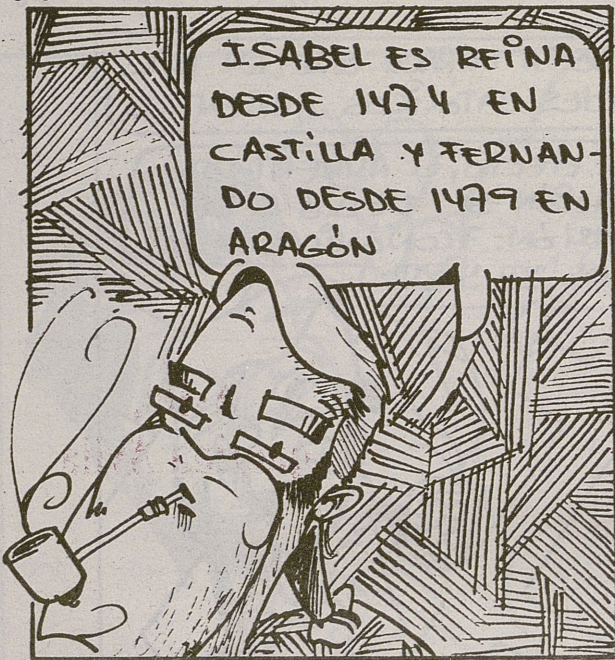 ISABEL ES REINA
DESDE 1474 EN
CASTILLA Y FERNAN-
DO DESDE 1479 EN
ARAGÓN